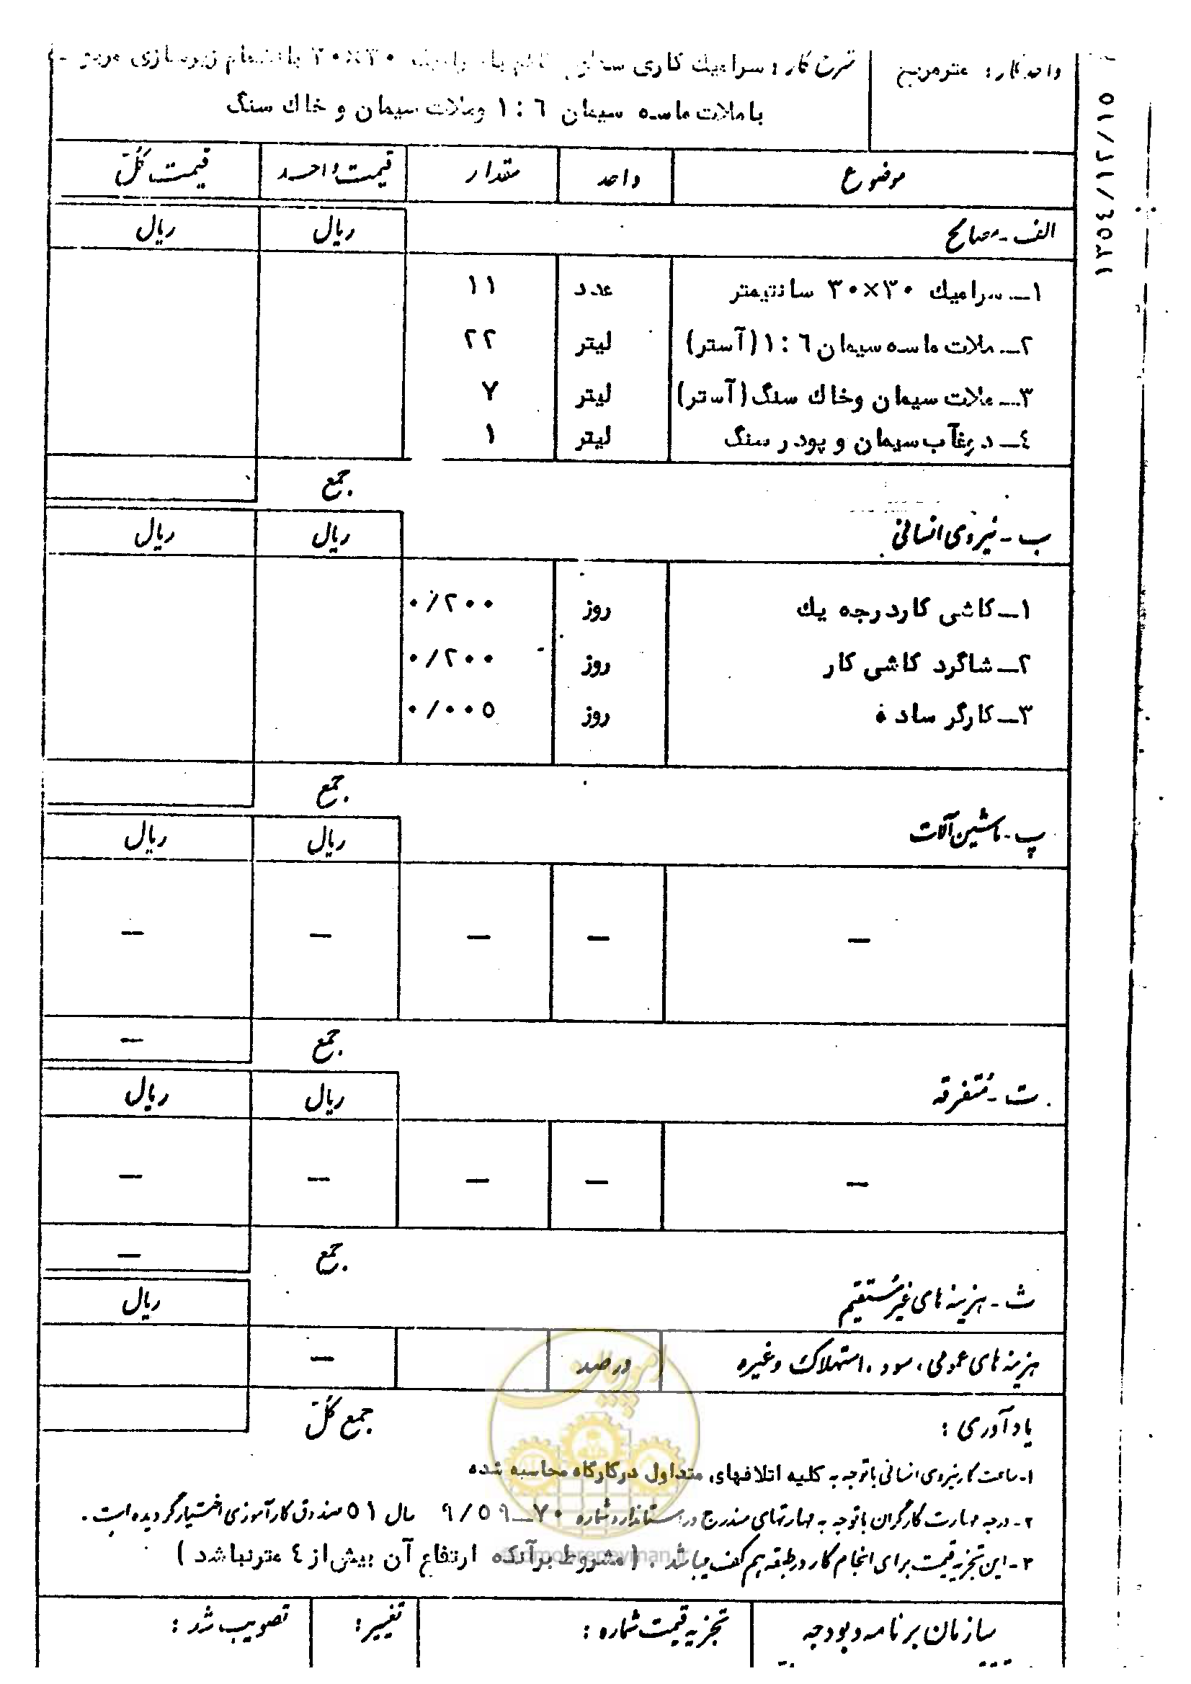 واحد کار : مترمربع
شرح کار : سرامیك کاری ۳۰×۳۰ با انضمام زیرسازی
با ملات ماسه سیمان ٦ : ۱ وملات سیمان و خاك سنگ
۱۲٥٤/۱۲/۱٥
موضوع واحد مقدار قیمت واحد قیمت کل
الف - مصالح ریال ریال
۱ــ سرامیك ۳۰×۳۰ سانتیمتر عدد ۱۱
۲ــ ملات ماسه سیمان ٦ : ۱ (آستر) لیتر ۲۲
۳ــ ملات سیمان وخاك سنگ (آستر) لیتر ۷
٤ــ دوغآب سیمان و پودر سنگ لیتر ۱
جمع
ب - نیروی انسانی ریال ریال
۱ــ کاشی کار درجه یك روز ۰/۲۰۰
۲ــ شاگرد کاشی کار روز ۰/۲۰۰
۳ــ کارگر ساده روز ۰/۰۰٥
جمع
پ - ماشین آلات ریال ریال
— — — — —
جمع —
ت - متفرقه ریال ریال
— — — — —
جمع —
ث - هزینه های غیرمستقیم ریال
هزینه های عمومی ، سود ، استهلاک وغیره درصد —
جمع کل
یادآوری :
۱- ساعت کار نیروی انسانی با توجه به کلیه اتلافهای متداول در کارگاه محاسبه شده
۲- درجه مهارت کارگران با توجه به مهارتهای مندرج در استاندارد شماره ۷۰ــ۹/٥۹ سال ٥۱ صندوق کارآموزی اختیار گردیده است .
۳- این تجزیه قیمت برای انجام کار در طبقه هم کف میباشد . ( مشروط برآنکه ارتفاع آن بیش از ٤ متر نباشد )
سازمان برنامه و بودجه تجزیه قیمت شماره : تغییر : تصویب شد :
امور پیمان